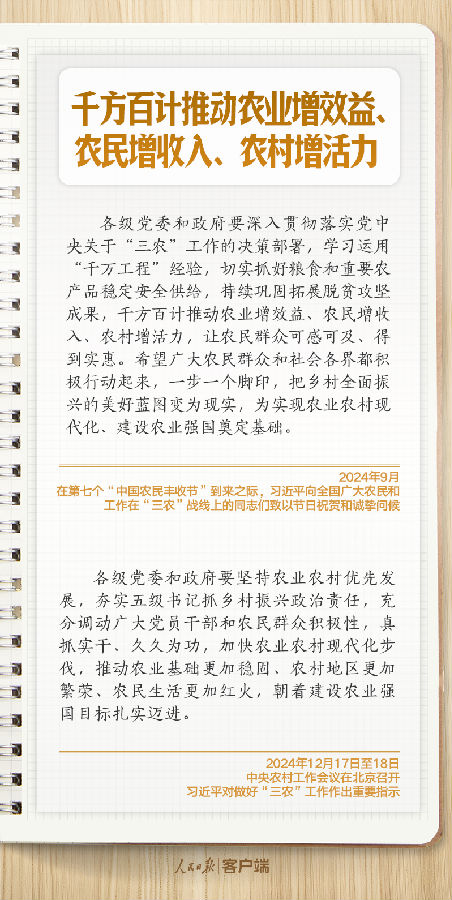 千方百计推动农业增效益、
农民增收入、农村增活力
各级党委和政府要深入贯彻落实党中
央关于“三农”工作的决策部署，学习运用
“千万工程”经验，切实抓好粮食和重要农
产品稳定安全供给，持续巩固拓展脱贫攻坚
成果，千方百计推动农业增效益、农民增收
入、农村增活力，让农民群众可感可及、得
到实惠。希望广大农民群众和社会各界都积
极行动起来，一步一个脚印，把乡村全面振
兴的美好蓝图变为现实，为实现农业农村现
代化、建设农业强国奠定基础。
2024年9月
在第七个“中国农民丰收节”到来之际，习近平向全国广大农民和
工作在“三农”战线上的同志们致以节日祝贺和诚挚问候
各级党委和政府要坚持农业农村优先发
展，夯实五级书记抓乡村振兴政治责任，充
分调动广大党员干部和农民群众积极性，真
抓实干、久久为功，加快农业农村现代化步
伐，推动农业基础更加稳固、农村地区更加
繁荣、农民生活更加红火，朝着建设农业强
国目标扎实迈进。
2024年12月17日至18日
中央农村工作会议在北京召开
习近平对做好“三农”工作作出重要指示
人民日报|客户端